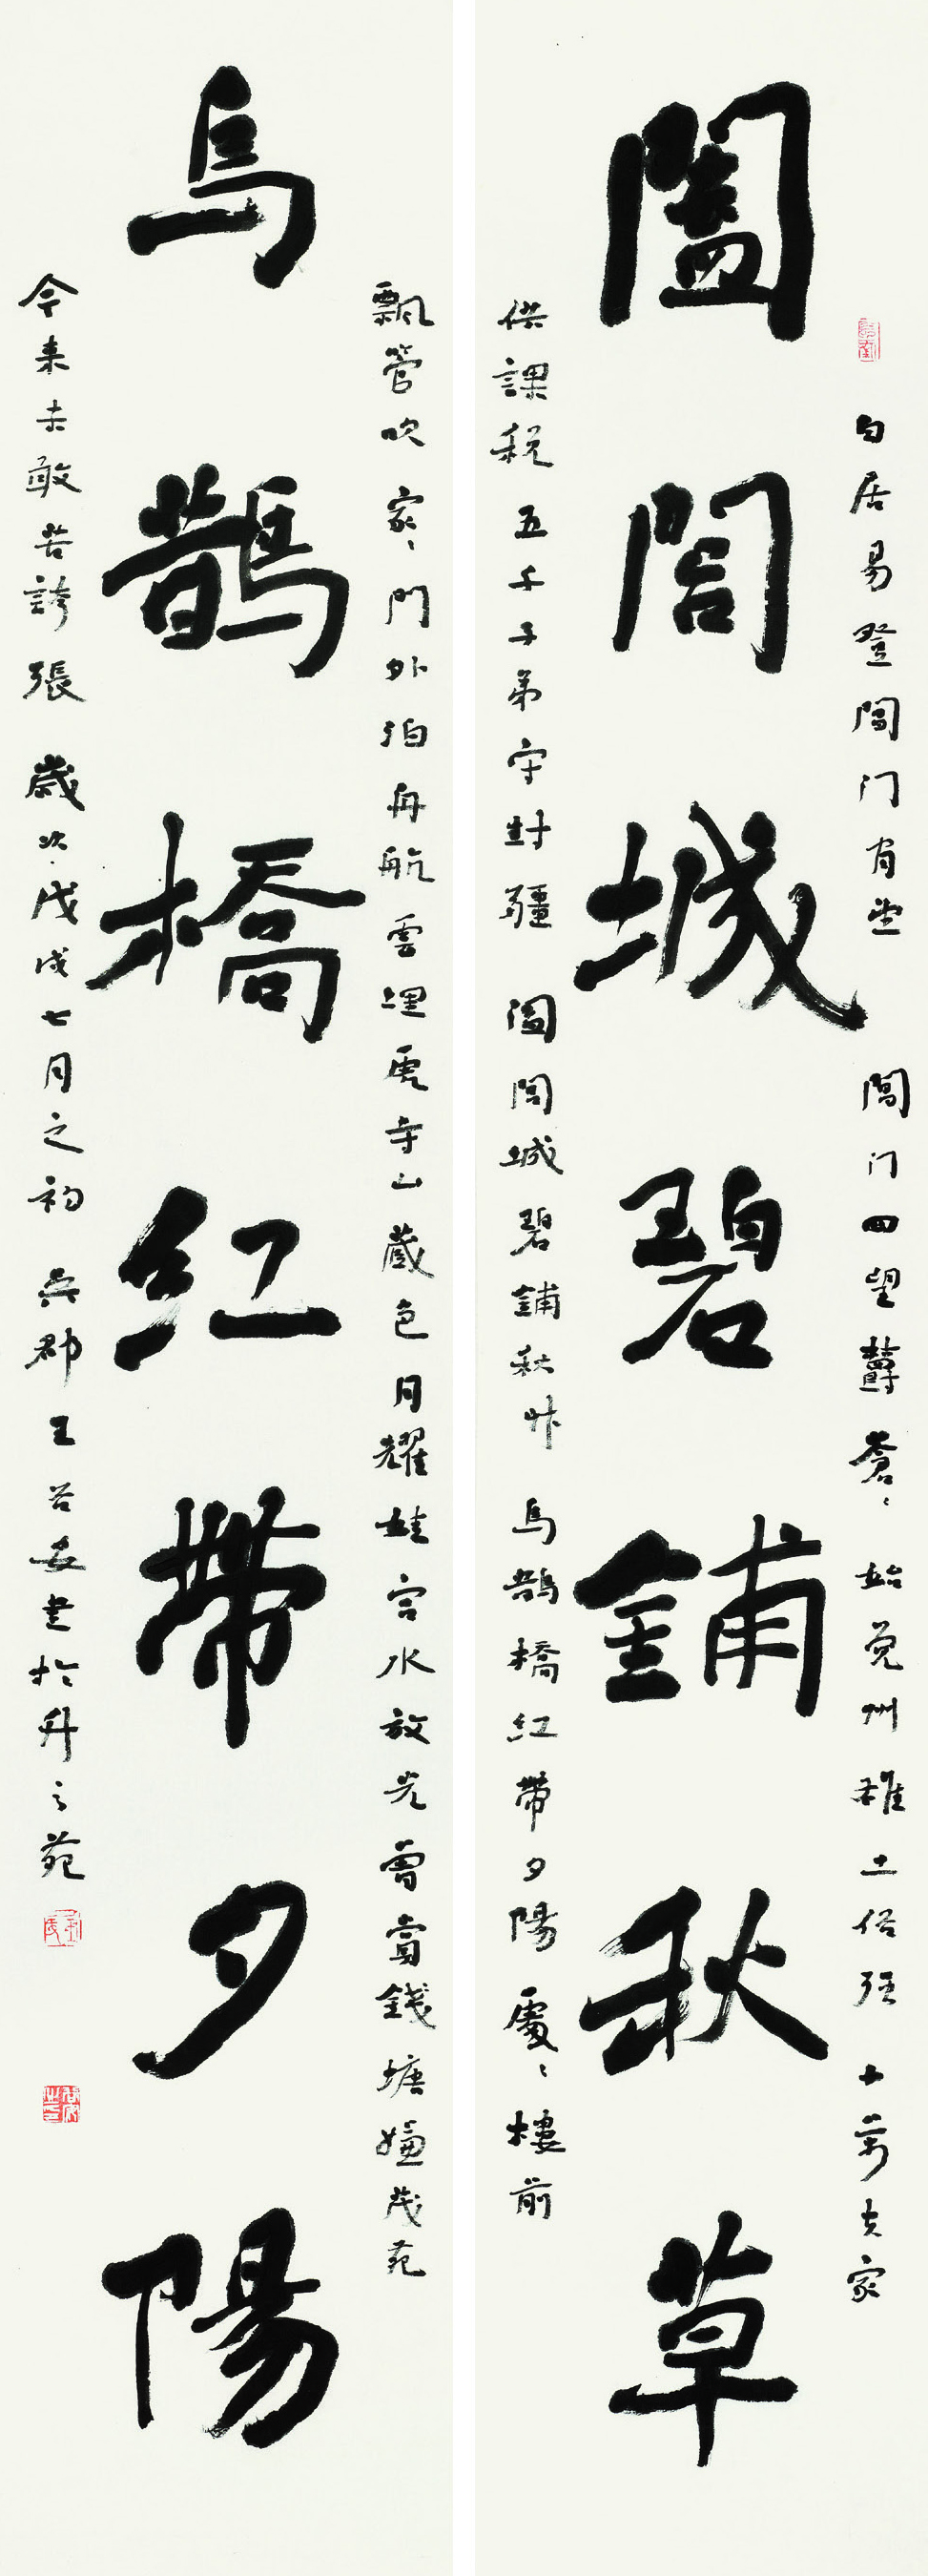 白居易登閶门望 閶门四望鬱蒼〻 始覺州雄土俗强 十萬夫家
闔閭城碧鋪秋草
供課税 五千子弟守封疆 闔閭城碧鋪秋草 烏鵲橋紅帶夕陽 處〻樓前
飄管吹 家〻門外泊舟航 雲埋虎寺山藏色 月耀娃宫水放光 曾賞錢塘嫌茂苑
烏鵲橋紅帶夕陽
今來未敢苦誇張 歲次戊戌七月之初 吳郡王谷安書於升之苑